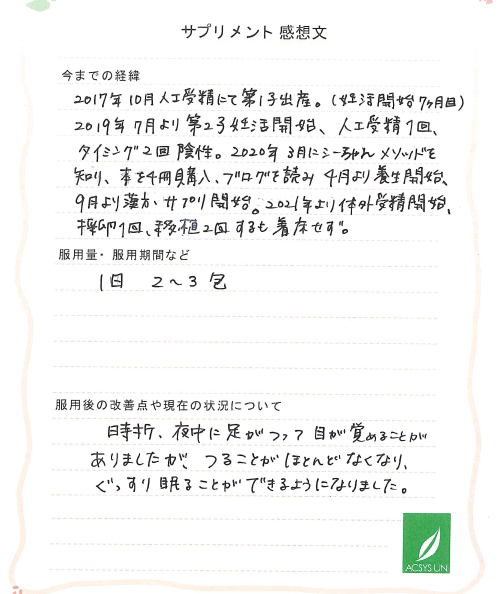 サプリメント 感想文
今までの経緯
2017年10月人工受精にて第1子出産。(妊活開始7ヶ月目)
2019年7月より第2子妊活開始、人工受精1回、
タイミング2回陰性。2020年3月にシーちゃんメソッドを
知り、本を4冊購入、ブログを読み4月より養生開始、
9月より漢方、サプリ開始。2021年より体外受精開始、
採卵1回、移植2回するも着床せず。
服用量・服用期間など
1日 2〜3包
服用後の改善点や現在の状況について
時折、夜中に足がつって目が覚めることが
ありましたが、つることがほとんどなくなり、
ぐっすり眠ることができるようになりました。
ACSYS UN